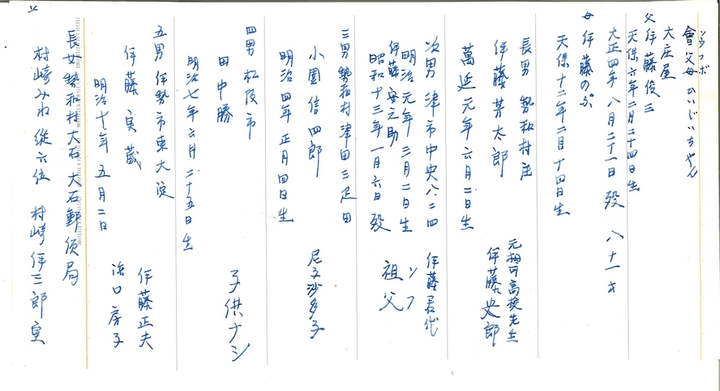 ソウフボ
曾父母 ひいじいちゃん
大庄屋
父 伊藤俊三
天保六年二月二十四日生
大正四年八月二十一日 歿 八十一才
母 伊藤のぶ
天保十二年二月十四日生
長男 勢和村庄
伊藤芳太郎
萬延元年六月二日生
元相可高校先生
伊藤史郎
次男 津市中央八、二四
明治元年三月二日生
伊藤安之助
昭和十三年一月六日歿
伊藤君代
ソフ
祖父
三男 勢和村津田三疋田
小園信四郎
明治四年正月四日生
尼子沙多子
四男 松阪市
田中勝
明治七年六月二十五日生
子供ナシ
五男 伊勢市東大淀
伊藤寅蔵
明治十年五月二日
伊藤正夫
浜口房子
長女 勢和村大石 大石郵便局
村崎みね 従六位 村崎伊三郎室